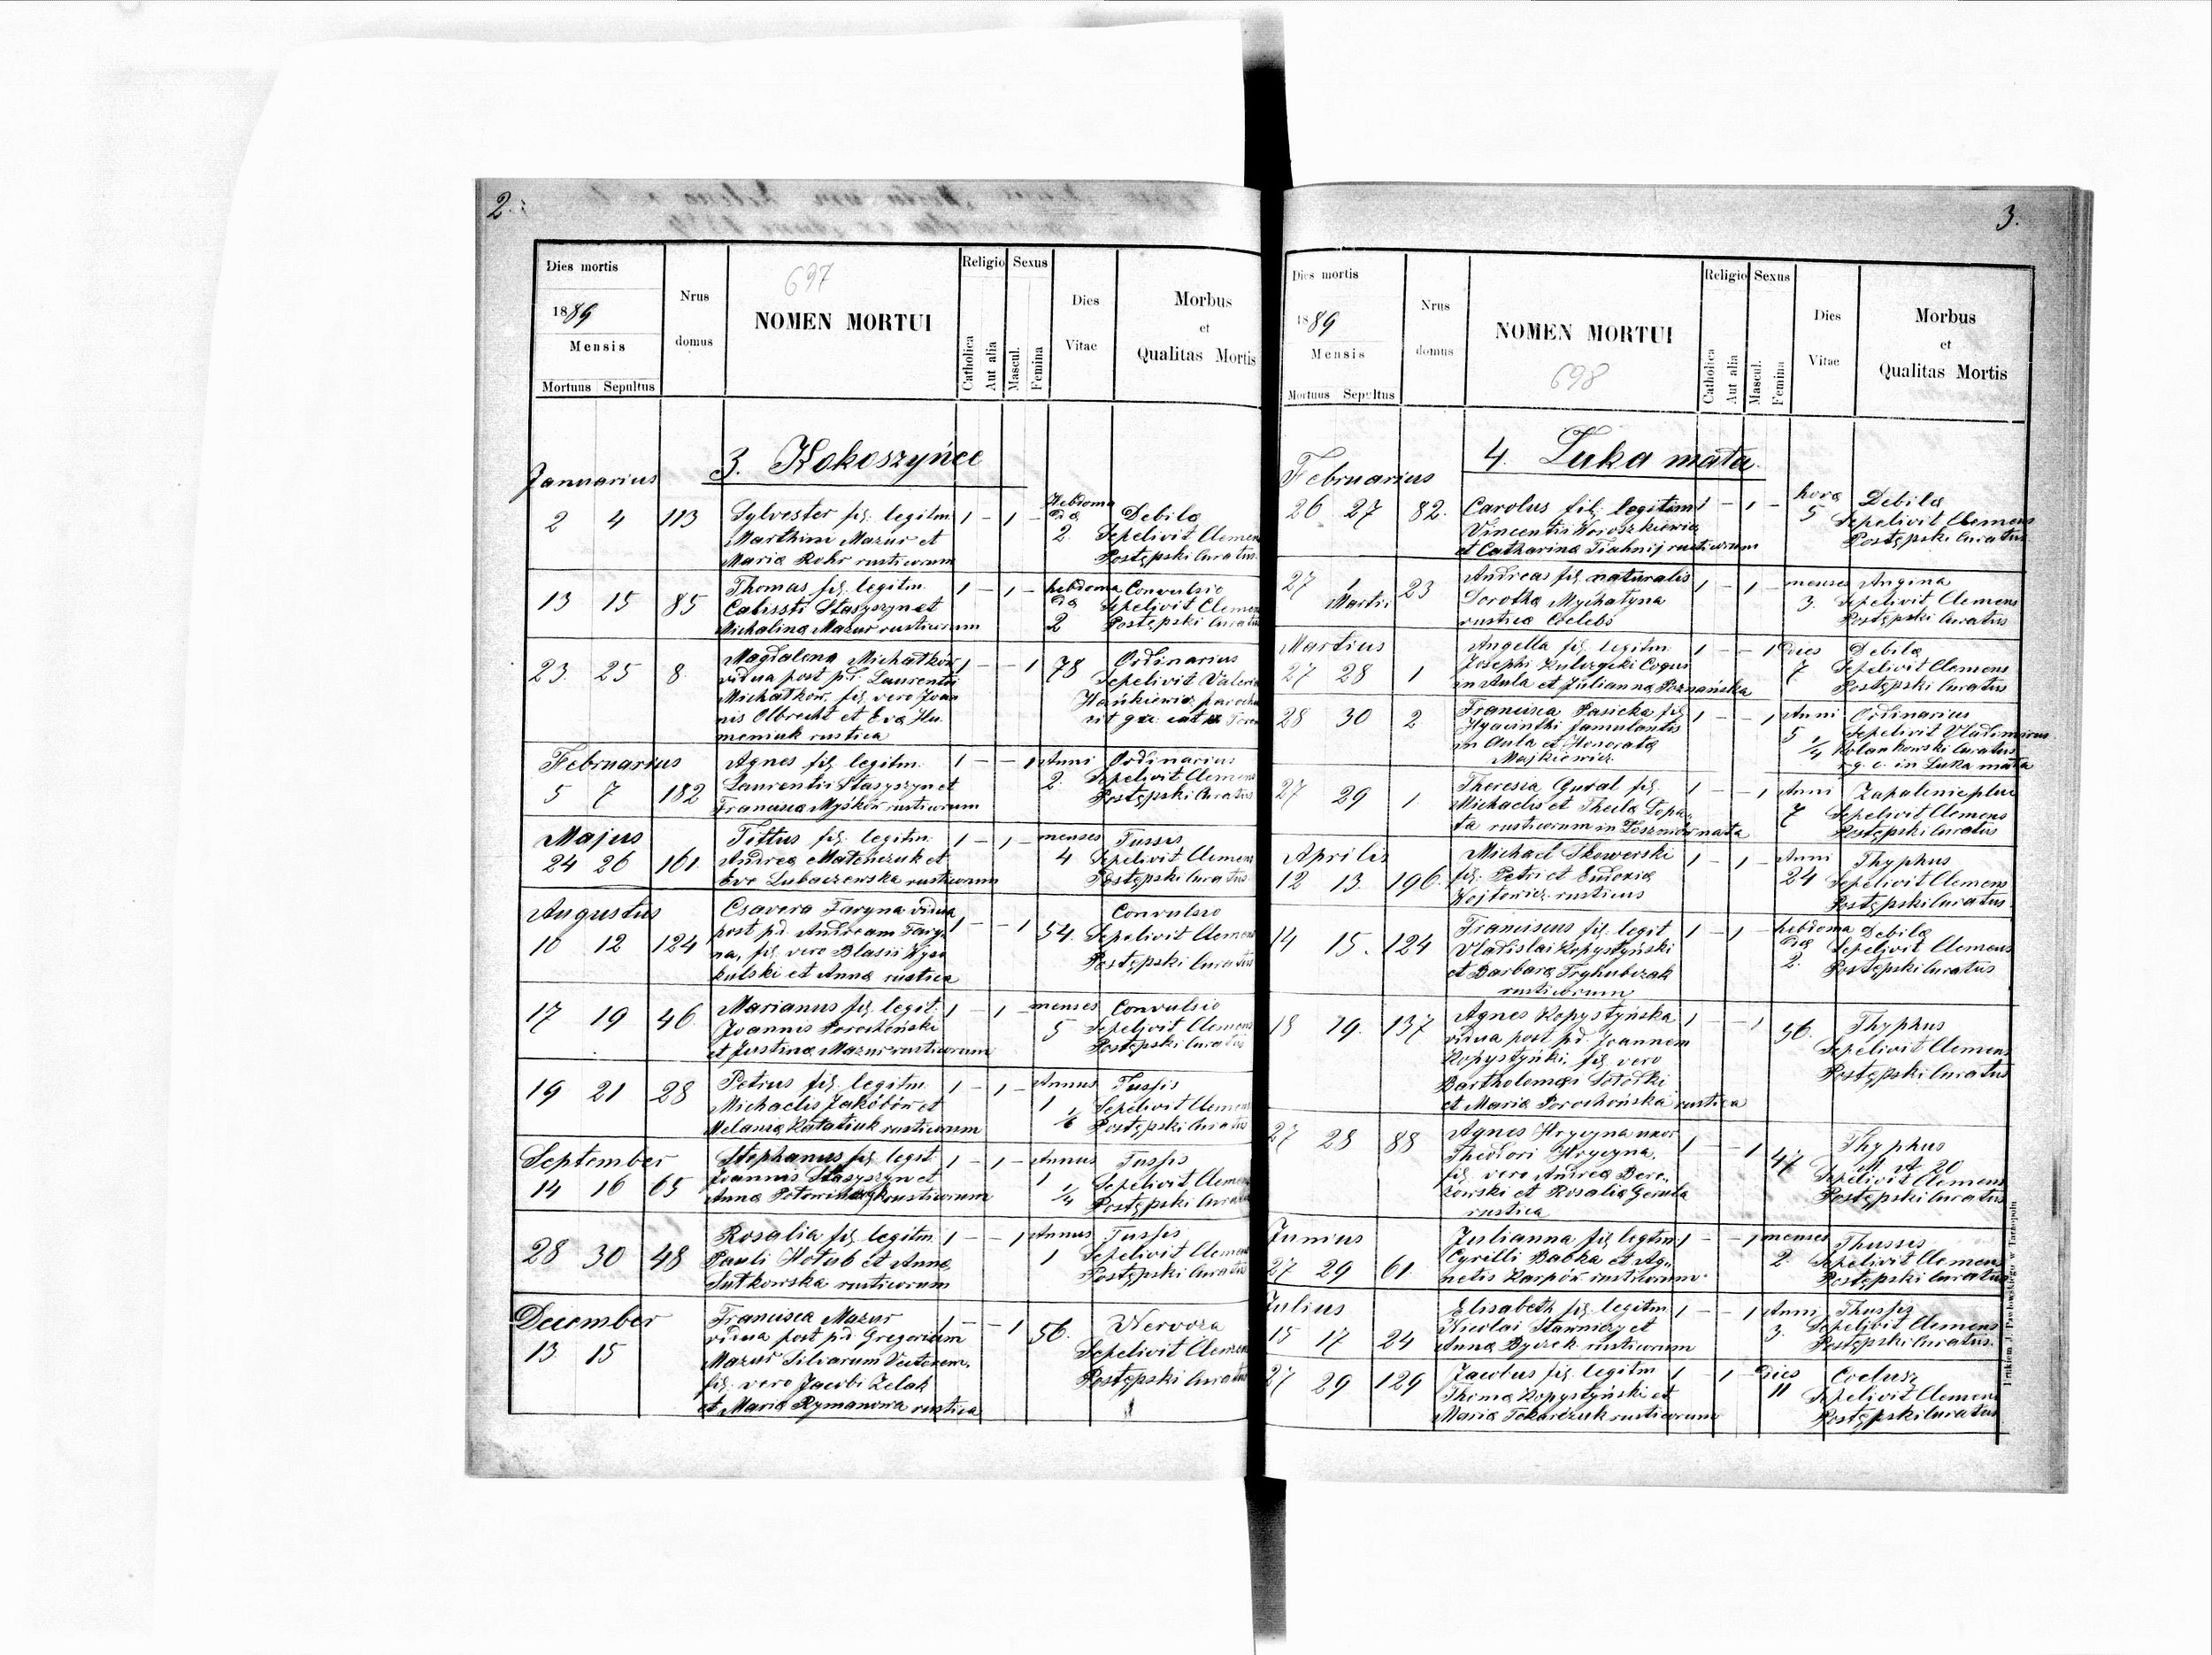 2.
Dies mortis
1889
Mensis
Mortuus Sepultus
Nrus
domus
697
NOMEN MORTUI
Religio
Catholica
Aut alia
Sexus
Mascul.
Femina
Dies
Vitae
Morbus
et
Qualitas Mortis
3. Kokoszyńce
Januarius
2 4 113 Sylvester fil: legitm 1 - 1 - Hebdoma Debila
dia
Marthini Mazur et 2. Sepelivit Clemen
Maria Rohr rusticorum Postępski Curatus
13 15 85 Thomas fil. legitm. 1 - 1 - hebdoma Convulsio
dia
Calissti Stasyszyn et Sepelivit Clemen
Michalina Mazur rusticorum 2 Postępski Curatu
23 25 8 Magdalena Michałków 1 - - 1 78 Ordinarius
vidua post p.d. Laurentii Sepelivit Valeria
Michałków, fil. vero Joan
nis Olbrecht et Eva Hu
meniuk rustica
Februarius
5 7 182 Agnes fil legitm. 1 - - 1 Anni Ordinarius
Laurentii Stasyszyn et 2. Sepelivit Clemen
Francisca Myśków rusticorum Postępski Curatus
Majus
24 26 161 Tittus fil legitm. 1 - 1 - menses Tussis
Andrea Mateńczuk et 4 Sepelivit Clemen
Eva Lubaczewska rusticorum Postępski Curatus
Augustus
10 12 124 Csavera Faryna vidua 1 - - 1 54. Convulsio
post p.d. Andream Fary- Sepelivit Clemen
na, fil. vero Blasii Wyso Postępski Curatus
kulski et Anna rustica
17 19 46 Marianus fil legit. 1 - 1 - menses Convulsio
Joannis Porochoński 5 Sepelivit Clemen
et Justina Mazur rusticorum Postępski Curatus
19 21 28 Petrus fil legitm. 1 - 1 - Annus Tussis
Michaelis Jakóbów et 1 Sepelivit Clemen
Melania Kataliuk rusticorum Postępski Curatus
September
14 16 65 Stephanus fil legit 1 - 1 - Annus Tussis
Joannis Stasyszyn et 1 1/4 Sepelivit Clemen
Anna rusticorum Postępski Curatu
28 30 48 Rosalia fil legitm 1 - - 1 Annus Tussis
Pauli Hołub et Anna 1 Sepelivit Clemen
Sutkowska rusticorum Postępski Curatu
December
13 15 Francisca Mazur 1 - - 1 56. Nervoza
vidua post p.d. Gregorium Sepelivit Clemen
Mazur
fil. vero Jacobi Zelak Postępski Curatu
et Maria Rymanowa rustica
3.
Dies mortis
1889
Mensis
Mortuus Sepultus
Nrus
domus
NOMEN MORTUI
698
Religio
Catholica
Aut alia
Sexus
Mascul.
Femina
Dies
Vitae
Morbus
et
Qualitas Mortis
4. Łuka mała
Februarius
26 27 82. Carolus fil. legitim 1 - 1 - hora Debila
Vincentii Woroszkiewicz 5 Sepelivit Clemens
et Catharina rusticorum Postępski Curatus
27 1 Martii 23 Andreas fil naturalis 1 - 1 - menses Angina
Dorotha Mychatyna 3. Sepelivit Clemens
rustica Coelebs Postępski Curatus
Martius
27 28 1 Angella fil legitm 1 - - 1 Dies Debila
Josephi Coqus 7 Sepelivit Clemens
in Aula et Julianna Poznańska Postępski Curatus
28 30 2 Francisca Pasicka fil 1 - - 1 Anni Ordinarius
Hyacinthi famulantis 5 1/4 Sepelivit Vladimirus
in Aula et Honorata Curatus
Majkiewicz r. g. c. in Łuka mała
27 29 1. Theresia Gural fil 1 - - 1 Anni Zapalenie płuc
Michaelis et Thecla Łopa- 7 Sepelivit Clemens
ta rusticorum in nata Postępski Curatus
Aprilis
12 13. 196. Michael Skowerski 1 - 1 - Anni Thyphus
fil. Petri et Eudoxia 24 Sepelivit Clemens
Wojtowicz rusticus Postępski Curatus
14 15. 124 Franciscus fil. legit 1 - 1 - hebdoma Debila
dia
Vladislai Kopystyński 2. Sepelivit Clemens
et Barbara Tryhubczak Postępski Curatus
rusticorum
18 19. 137 Agnes Kopystyńska 1 - - 1 56. Thyphus
vidua post p.d. Joannem Sepelivit Clemens
Kopystyński, fil vero Postępski Curatus
Bartholomaei Sołodki
et Maria Porochońska rustica
27 28 88 Agnes Hrycyna uxor 1 - - 1 47 Thyphus
Theodori Hrycyna,
fil. vero Andrea Bere- Sepelivit Clemens
zowski et Rosalia Gerula Postępski Curatus
rustica
Junius
27 29 61. Julianna fil legtm 1 - - 1 menses Thussis
Cyrilli Babka et Ag- 2. Sepelivit Clemens
netis Karpów rusticorum Postępski Curatus
Julius
15 17 24 Elisabeth fil legitm 1 - - 1 Anni Thussis
Nicolai Stawniczy et 3. Sepelivit Clemens
Anna Byczek rusticorum Postępski Curatus.
27 29 129 Jacobus fil legitm 1 - 1 Dies
Thoma Kopystyński et 11 Sepelivit Clemens
Maria Tokarczuk rusticorum Postępski Curatus
Drukiem J. Pawłowskiego w Tarnopolu